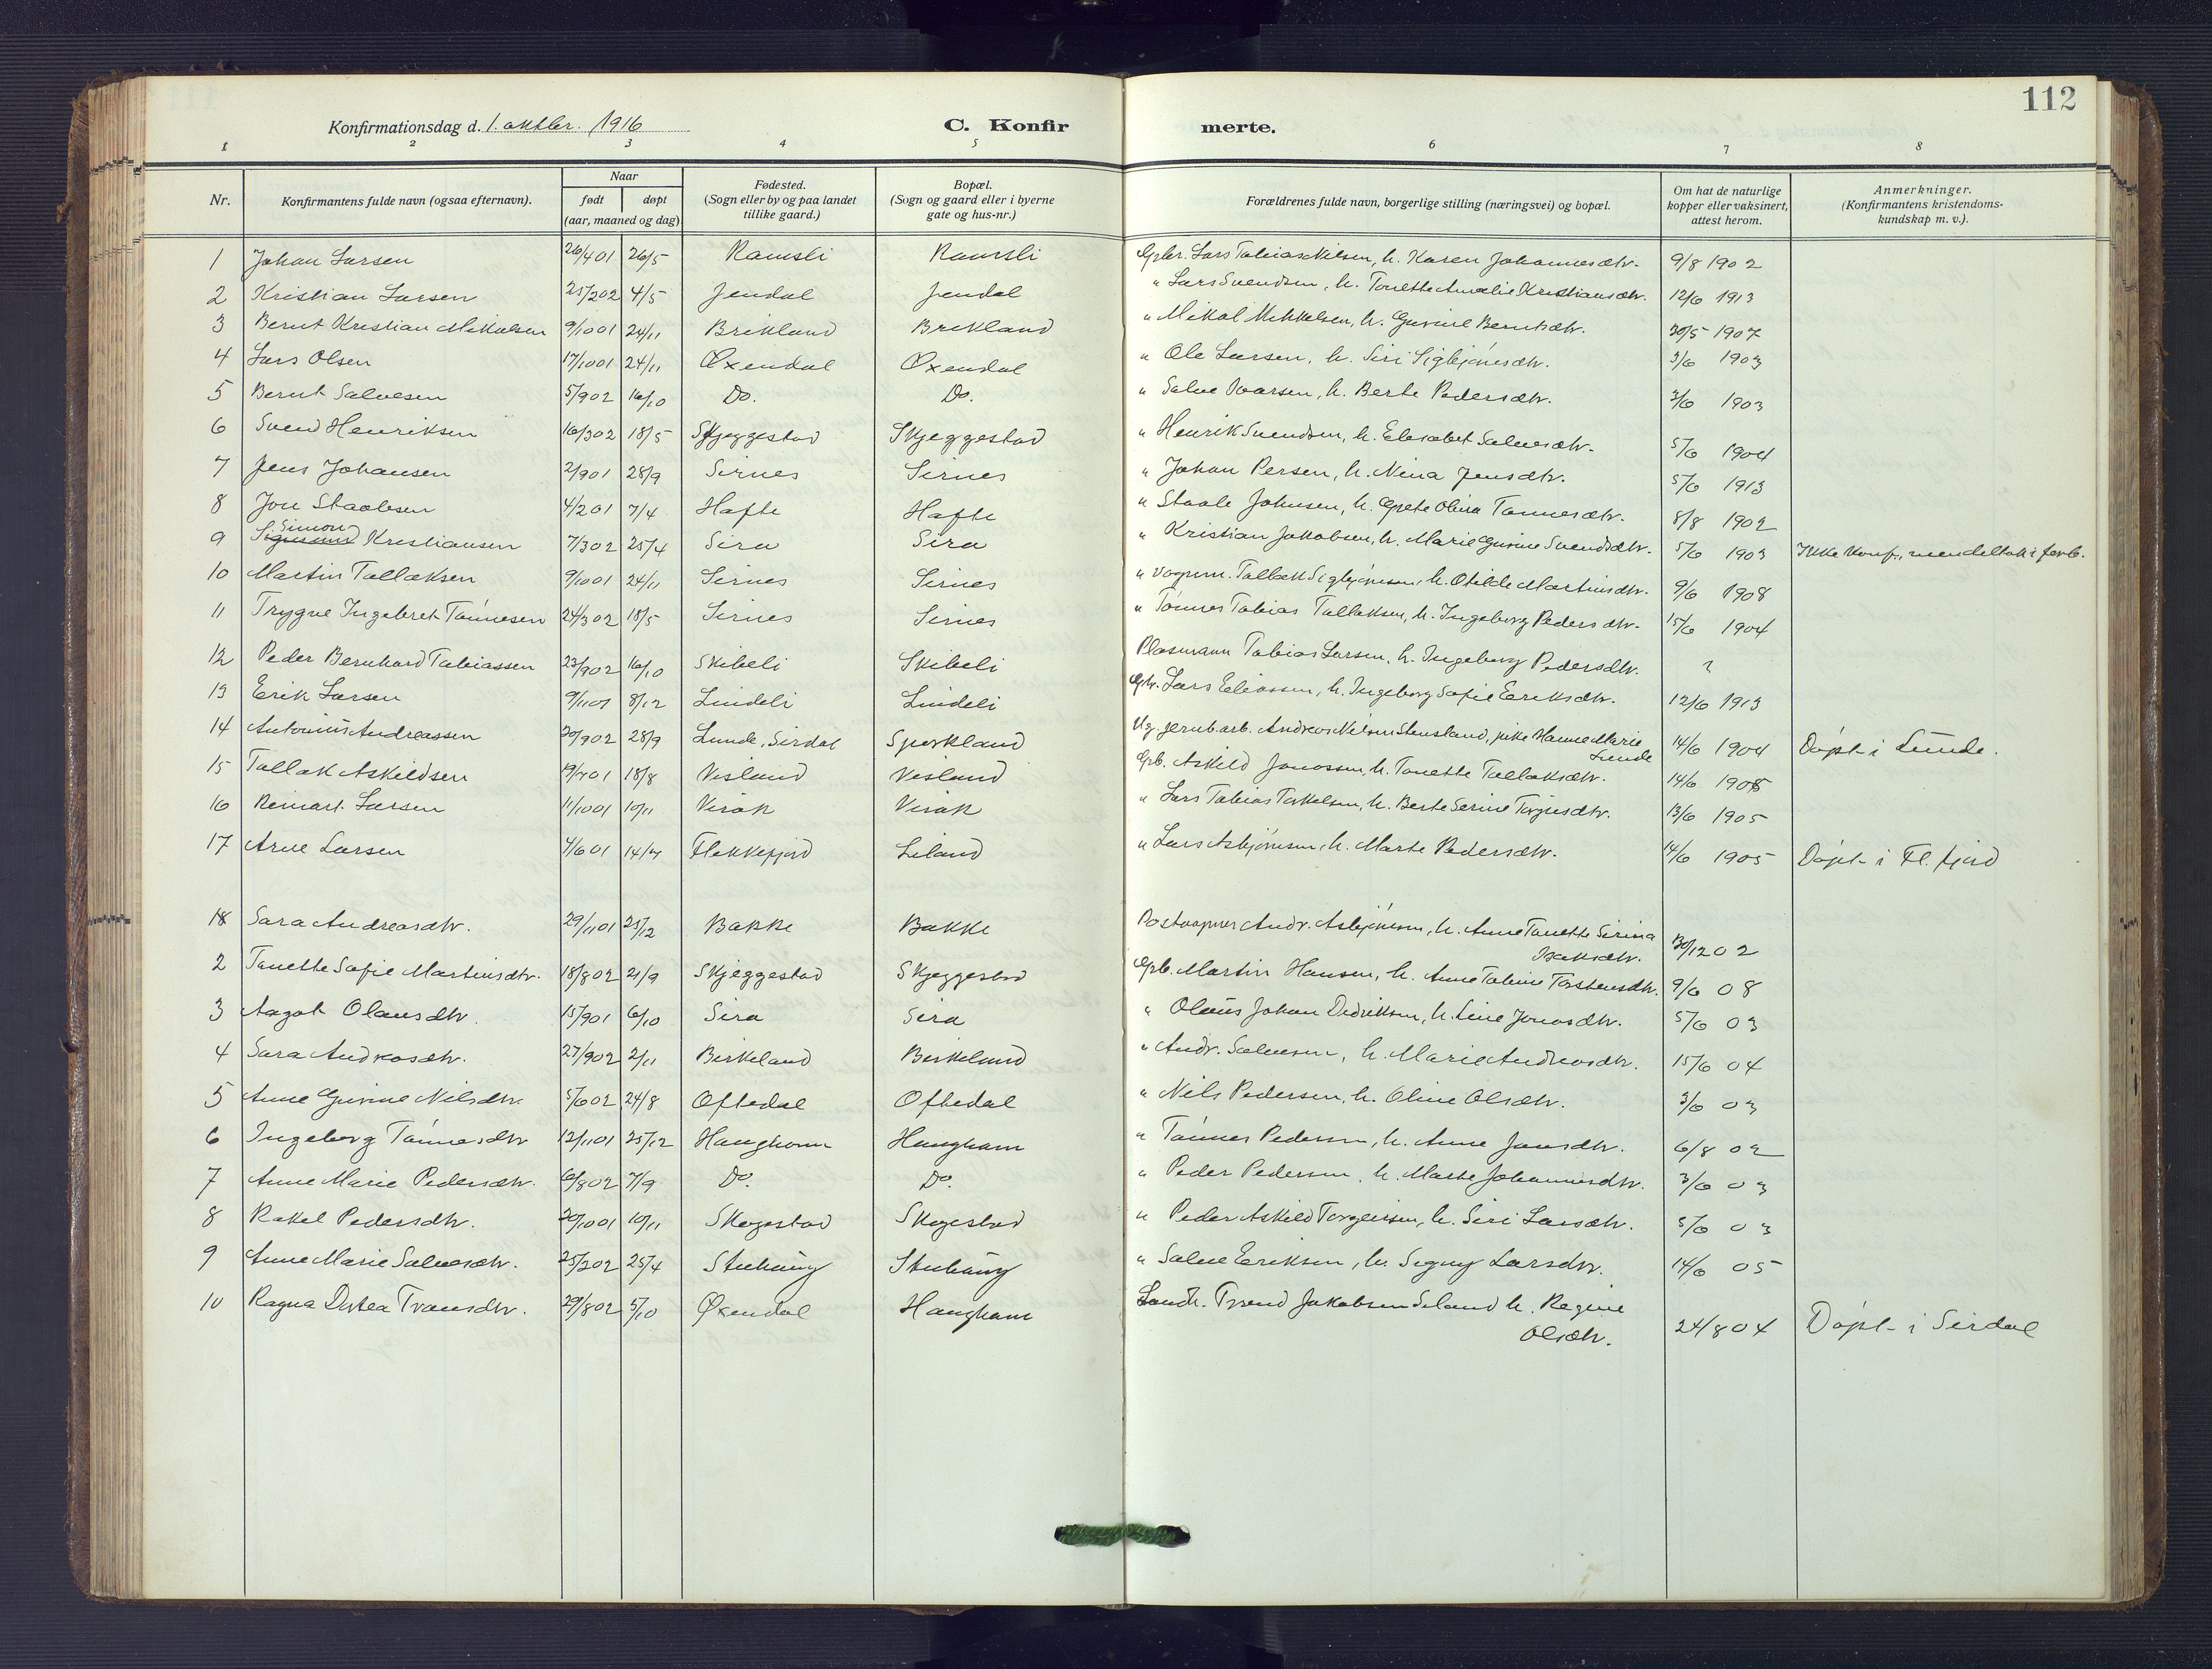 112
Konfirmationsdag d. 1. oktbr. 1916
C. Konfirmerte.
1 2 3 4 5 6 7 8
Nr. Konfirmantens fulde navn (ogsaa efternavn). Naar født døpt (aar, maaned og dag) Fødested. (Sogn eller by og paa landet tillike gaard.) Bopæl. (Sogn og gaard eller i byerne gate og hus-nr.) Forældrenes fulde navn, borgerlige stilling (næringsvei) og bopæl. Om hat de naturlige kopper eller vaksinert, attest herom. Anmerkninger. (Konfirmantens kristendomskundskap m. v.).
1 Johan Larsen 26/4 01 26/5 Ramsli Ramsli Gbr. Lars Tobias Nilsen, h. Karen Johannesdtr. 9/8 1902
2 Kristian Larsen 25/2 02 4/5 Jendal Jendal " Lars Svendsen, h. Tonette Amalie Kristiansdtr. 12/6 1913
3 Bernt Kristian Mikalsen 9/10 01 24/11 Brekland Brekland " Mikal Mikkelsen, h. Gurine Berntsdtr. 30/5 1907
4 Lars Olsen 17/10 01 24/11 Øxendal Øxendal " Ole Larsen, h. Siri Sigbjørnsdtr. 3/6 1903
5 Bernt Salvesen 5/9 02 16/10 Do. Do. " Salve Ivarsen, h. Berte Pedersdtr. 3/6 1903
6 Svend Henriksen 16/3 02 18/5 Skjeggestad Skjeggestad " Henrik Svendsen, h. Elisabet Salvesdtr. 5/6 1904
7 Jens Johansen 2/9 01 28/9 Sirnes Sirnes " Johan Persen, h. Nina Jensdtr. 5/6 1913
8 Jon Staalesen 4/2 01 7/4 Hafte Hafte " Staale Johnsen, h. Grete Olina Tønnesdtr. 8/8 1902
Simon
9 Sigmund Kristiansen 7/3 02 25/4 Sira Sira " Kristian Jakobsen, h. Marie Gurine Svendsdtr. 5/6 1903 Ikke konf., men deltok i forb.
10 Martin Tallaksen 9/10 01 24/11 Sirnes Sirnes " vognm. Tallak Sigbjørnsen, h. Otilde Martinsdtr. 9/6 1908
11 Trygve Ingebret Tønnesen 24/3 02 18/5 Sirnes Sirnes " Tønnes Tobias Tallaksen, h. Ingeborg Pedersdtr. 15/6 1904
12 Peder Bernhard Tobiassen 23/9 02 16/10 Skibeli Skibeli Plasmann Tobias Larsen, h. Ingeborg Pedersdtr. ?
13 Erik Larsen 9/11 01 8/12 Lindeli Lindeli Gbr. Lars Eliassen, h. Ingeborg Sofie Eriksdtr. 12/6 1913
14 Antonius Andreassen 20/9 02 28/9 Lunde, Sirdal Sporkland Ug. jernb.arb. Andreas Nilsen Stensland, pike Hanne Marie Lunde 14/6 1904 Døpt i Lunde.
15 Tallak Askildsen 19/7 01 18/8 Visland Visland Gb. Askild Jonassen, h. Tonette Tallaksdtr. 14/6 1905
16 Reinart Larsen 11/10 01 10/11 Virak Virak " Lars Tobias Torkelsen, h. Berte Serine Torjusdtr. 13/6 1905
17 Arne Larsen 4/6 01 14/7 Flekkefjord Liland " Lars Asbjørnsen, h. Marte Pedersdtr. 14/6 1905 Døpt i Fl. fjord
18 Sara Andreasdtr. 29/11 01 25/12 Bakke Bakke Postaapner Andr. Asbjørnsen, h. Anne Tonette Sirina Isaksdtr. 30/12 02
2 Tonette Sofie Martinsdtr. 18/8 02 21/9 Skjeggestad Skjeggestad Gb. Martin Hansen, h. Anne Tobine Torstensdtr. 9/6 08
3 Aagot Olausdtr. 15/9 01 6/10 Sira Sira " Olaus Johan Didriksen, h. Line Jonasdtr. 5/6 03
4 Sara Andreasdtr. 27/9 02 2/11 Birkeland Birkeland " Andr. Salvesen, h. Marie Andreasdtr. 15/6 04
5 Anne Gurine Nilsdtr. 5/6 02 24/8 Oftedal Oftedal " Nils Pedersen, h. Oline Olsdtr. 3/6 03
6 Ingeborg Tønnesdtr 12/11 01 25/12 Haughom Haughom " Tønnes Pedersen, h. Anne Jonsdtr. 6/8 02
7 Anne Marie Pedersdtr. 6/8 02 7/9 Do. Do. " Peder Pedersen, h. Marte Johannesdtr. 3/6 03
8 Rakel Pedersdtr. 20/10 01 10/11 Skogestad Skogestad " Peder Askild Torgeirsen, h. Siri Larsdtr. 5/6 03
9 Anne Marie Salvesdtr. 25/2 02 25/4 Stuhaug Stuhaug " Salve Eriksen, h. Signy Larsdtr. 14/6 05
10 Ragna Dortea Transdtr. 29/8 02 5/10 Øxendal Haugham Landh. Trond Jakobsen Seland h. Regine Olsdtr. 24/8 04 Døpt i Sirdal